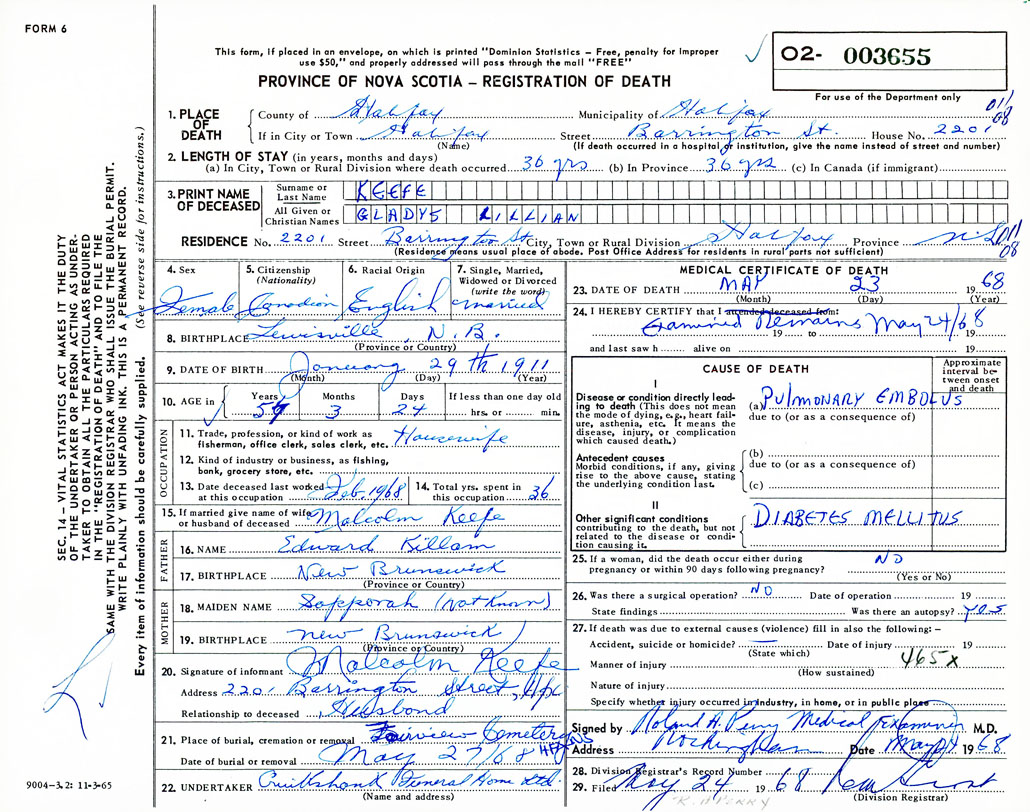 FORM 6
This form, if placed in an envelope, on which is printed "Dominion Statistics – Free, penalty for improper
use $50," and properly addressed will pass through the mail "FREE"
PROVINCE OF NOVA SCOTIA – REGISTRATION OF DEATH
02- 003655
For use of the Department only
011
08
1. PLACE OF DEATH
County of Halifax Municipality of Halifax
If in City or Town Halifax Street Barrington St. House No. 2201
(Name) (If death occurred in a hospital or institution, give the name instead of street and number)
2. LENGTH OF STAY (in years, months and days)
(a) In City, Town or Rural Division where death occurred 36 yrs (b) In Province 36 yrs (c) In Canada (if immigrant)
3. PRINT NAME OF DECEASED
Surname or Last Name KEEFE
All Given or Christian Names GLADYS LILLIAN
RESIDENCE No. 2201 Street Barrington St City, Town or Rural Division Halifax Province N.S. 011
08
(Residence means usual place of abode. Post Office Address for residents in rural parts not sufficient)
4. Sex Female
5. Citizenship (Nationality) Canadian
6. Racial Origin English
7. Single, Married, Widowed or Divorced (write the word) married
8. BIRTHPLACE Lewisville, N.B.
(Province or Country)
9. DATE OF BIRTH January 29th 1911
(Month) (Day) (Year)
10. AGE in Years 57 Months 3 Days 24 If less than one day old hrs. or min.
OCCUPATION
11. Trade, profession, or kind of work as fisherman, office clerk, sales clerk, etc. Housewife
12. Kind of industry or business, as fishing, bank, grocery store, etc.
13. Date deceased last worked at this occupation Feb. 1968
14. Total yrs. spent in this occupation 36
15. If married give name of wife or husband of deceased Malcolm Keefe
FATHER
16. NAME Edward Killam
17. BIRTHPLACE New Brunswick
(Province or Country)
MOTHER
18. MAIDEN NAME Sapporah (Not Known)
19. BIRTHPLACE New Brunswick
(Province or Country)
20. Signature of informant Malcolm Keefe
Address 2201 Barrington Street, Hfx
Relationship to deceased Husband
21. Place of burial, cremation or removal Fairview Cemetery
Date of burial or removal May 27/68
22. UNDERTAKER Cruikshank Funeral Home Ltd.
(Name and address)
MEDICAL CERTIFICATE OF DEATH
23. DATE OF DEATH MAY 23 1968
(Month) (Day) (Year)
24. I HEREBY CERTIFY that I attended deceased from:
Examined Remains May 24/68
19 to 19
and last saw h alive on 19
CAUSE OF DEATH
Approximate interval between onset and death
I
Disease or condition directly leading to death (This does not mean the mode of dying, e.g., heart failure, asthenia, etc. It means the disease, injury, or complication which caused death.)
(a) PULMONARY EMBOLUS
due to (or as a consequence of)
Antecedent causes
Morbid conditions, if any, giving rise to the above cause, stating the underlying condition last.
(b)
due to (or as a consequence of)
(c)
II
Other significant conditions contributing to the death, but not related to the disease or condition causing it.
DIABETES MELLITUS
25. If a woman, did the death occur either during pregnancy or within 90 days following pregnancy? NO
(Yes or No)
26. Was there a surgical operation? NO Date of operation 19
State findings Was there an autopsy? YES
27. If death was due to external causes (violence) fill in also the following: –
Accident, suicide or homicide? Date of injury 19
(State which)
465X
Manner of injury
(How sustained)
Nature of injury
Specify whether injury occurred in industry, in home, or in public place
Signed by Roland A. Perry Medical Examiner M.D.
Address Rockingham Date May 24 1968
28. Division Registrar's Record Number
29. Filed May 24 1968
(Division Registrar)
R. A. PERRY
SEC. 14 – VITAL STATISTICS ACT MAKES IT THE DUTY
OF THE UNDERTAKER OR PERSON ACTING AS UNDER-
TAKER TO OBTAIN ALL THE PARTICULARS REQUIRED
IN THE "REGISTRATION OF DEATH" AND TO FILE THE
SAME WITH THE DIVISION REGISTRAR WHO SHALL ISSUE THE BURIAL PERMIT.
WRITE PLAINLY WITH UNFADING INK. THIS IS A PERMANENT RECORD.
Every item of information should be carefully supplied. (See reverse side for instructions.)
9004-3.2: 11-3-65